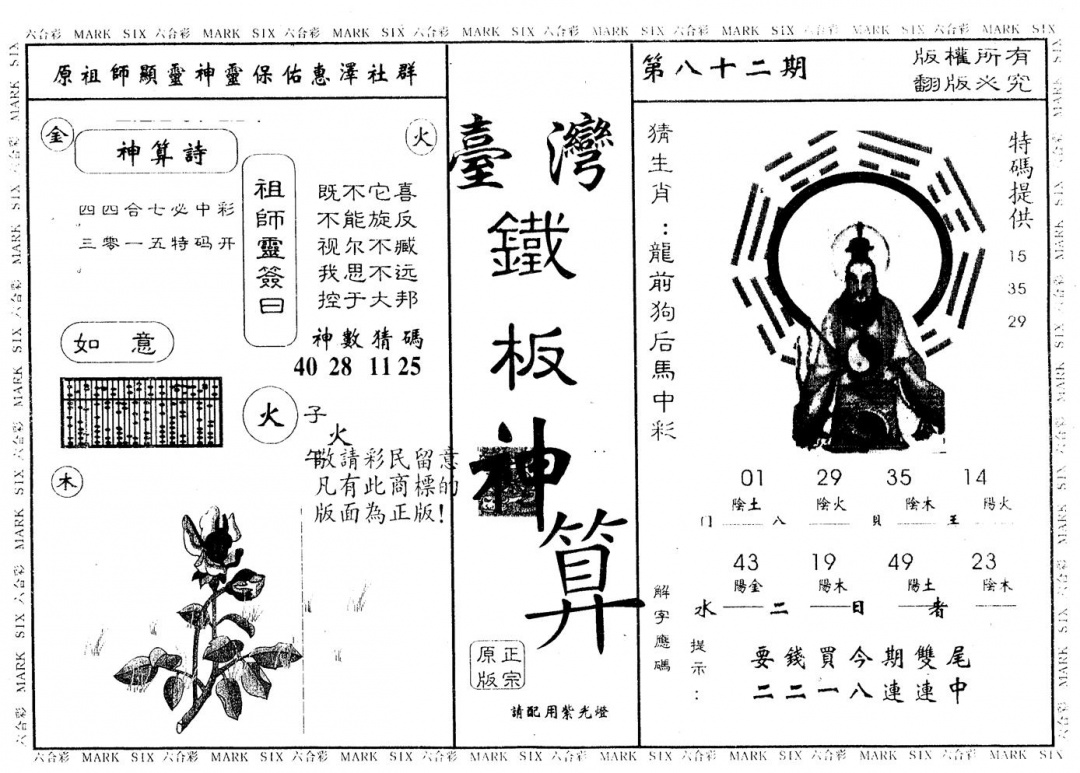 六合彩 MARK SIX 六合彩 MARK SIX 六合彩 MARK SIX 六合彩 MARK SIX 六合彩 MARK SIX 六合彩 MARK SIX 六合彩 MARK SIX 六合彩 MARK SIX
原祖師顯靈神靈保佑惠澤社群
金
火
神算詩
四四合七必中彩
三零一五特码开
祖師靈簽曰
既不它喜
不能旋反
视尔不臧
我思不远
控于大邦
神數猜碼
40 28 11 25
如 意
火
子
火
午
敬請彩民留意
凡有此商標的
版面為正版!
木
臺灣
鐵
板
神
算
正宗
原版
請配用紫光燈
第八十二期
版權所有
翻版必究
猜生肖:龍前狗后馬中彩
特碼提供
15
35
29
01 29 35 14
陰土 陰火 陰木 陽火
门 八 貝 王
43 19 49 23
陽金 陽木 陽土 陰木
水 二 日 者
解字應碼
提示:
要錢買今期雙尾
二二一八連連中
六合彩 MARK SIX 六合彩 MARK SIX 六合彩 MARK SIX 六合彩 MARK SIX 六合彩 MARK SIX 六合彩 MARK SIX 六合彩 MARK SIX 六合彩 MARK SIX